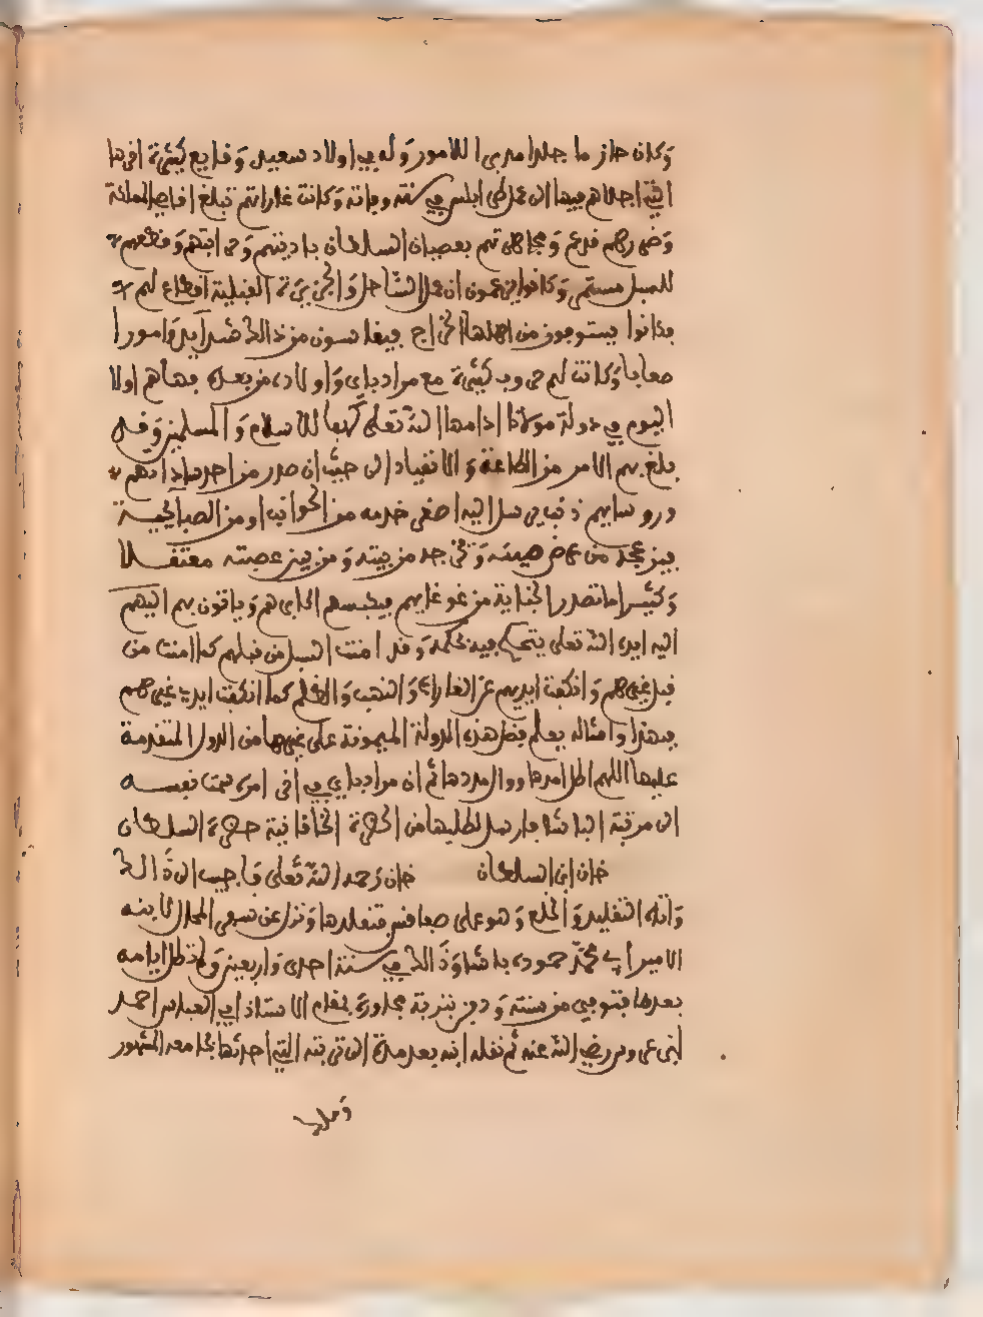 وكان حازما جلدا مدبرا للامور وله في اولاد سعيد وقايع كثيرة افرها
التي اجلاهم فيها الى سنة وفاته وكانت غاراتهم تبلغ اقاصي العمالة
وضررهم قد عم ومجاهرتهم بعصيان السلطان باديتهم وحرابتهم وقطعهم
للسبل مستمر وكانوا يزعمون ان عمل الساحل والجزيرة القبلية اقطاع لهم
فكانوا يستوجون من اهلها الخراج فيقاسون من ذالك شدايد وامورا
صعابا وكانت لهم حروب كثيرة مع مراد باي واولاده من بعده فها هم اولا
اليوم في دولة مولانا ادامها الله تعلى كهفا للاسلام والمسلمين وقد
بلغ بهم الامر من الطاعة والانقياد الى حيث ان صدر من احد ساداتهم
وروسايهم ذنب يرسل اليه اصغر خدمه من الحوانب او من الصبايحية
فيزعجه من هيئته ويخرجه من بيته ومن بين عصبته معتقلا
وكثيرا ما تصدر الجناية من غوغايهم فيحبسهم اكابرهم وياتون بهم اليهم
اليه ايده الله تعلى يتحكم فيه بحكمه وقد امنت السبل من قبلهم كما امنت من
قبل غيرهم وانكفت ايديهم عن الغارات والنهب والظلم كما انكفت ايدي غيرهم
فبهذا وامثاله يعلم فضل هذه الدولة الميمونة على غيرها من الدول المتقدمة
عليها اللهم اطل امدها ووال مددها ثم ان مراد باي في اخر امره سمت نفسه
الى مرتبة الباشا فارسل لطلبها من الحضرة الخاقانية حضرة السلطان
خان ابن السلطان خان رحمه الله تعلى فاجيب الى ذالك
واتته التقليد والخلع وهو على صفاقس فتقلدها ونزل عن سفر المحال لابنه
الامير ابي محمد حمودة باشا وذالك في سنة احدى واربعين ولم تطل ايامه
بعدها فتوفي من سنته ودفن بتربة مجاورة لمقام الاستاذ ابي العباس احمد
ابن عروس رضي الله عنه ثم نقله ابنه بعد مدة الى تربته التي احدثها بجامعه المشهور